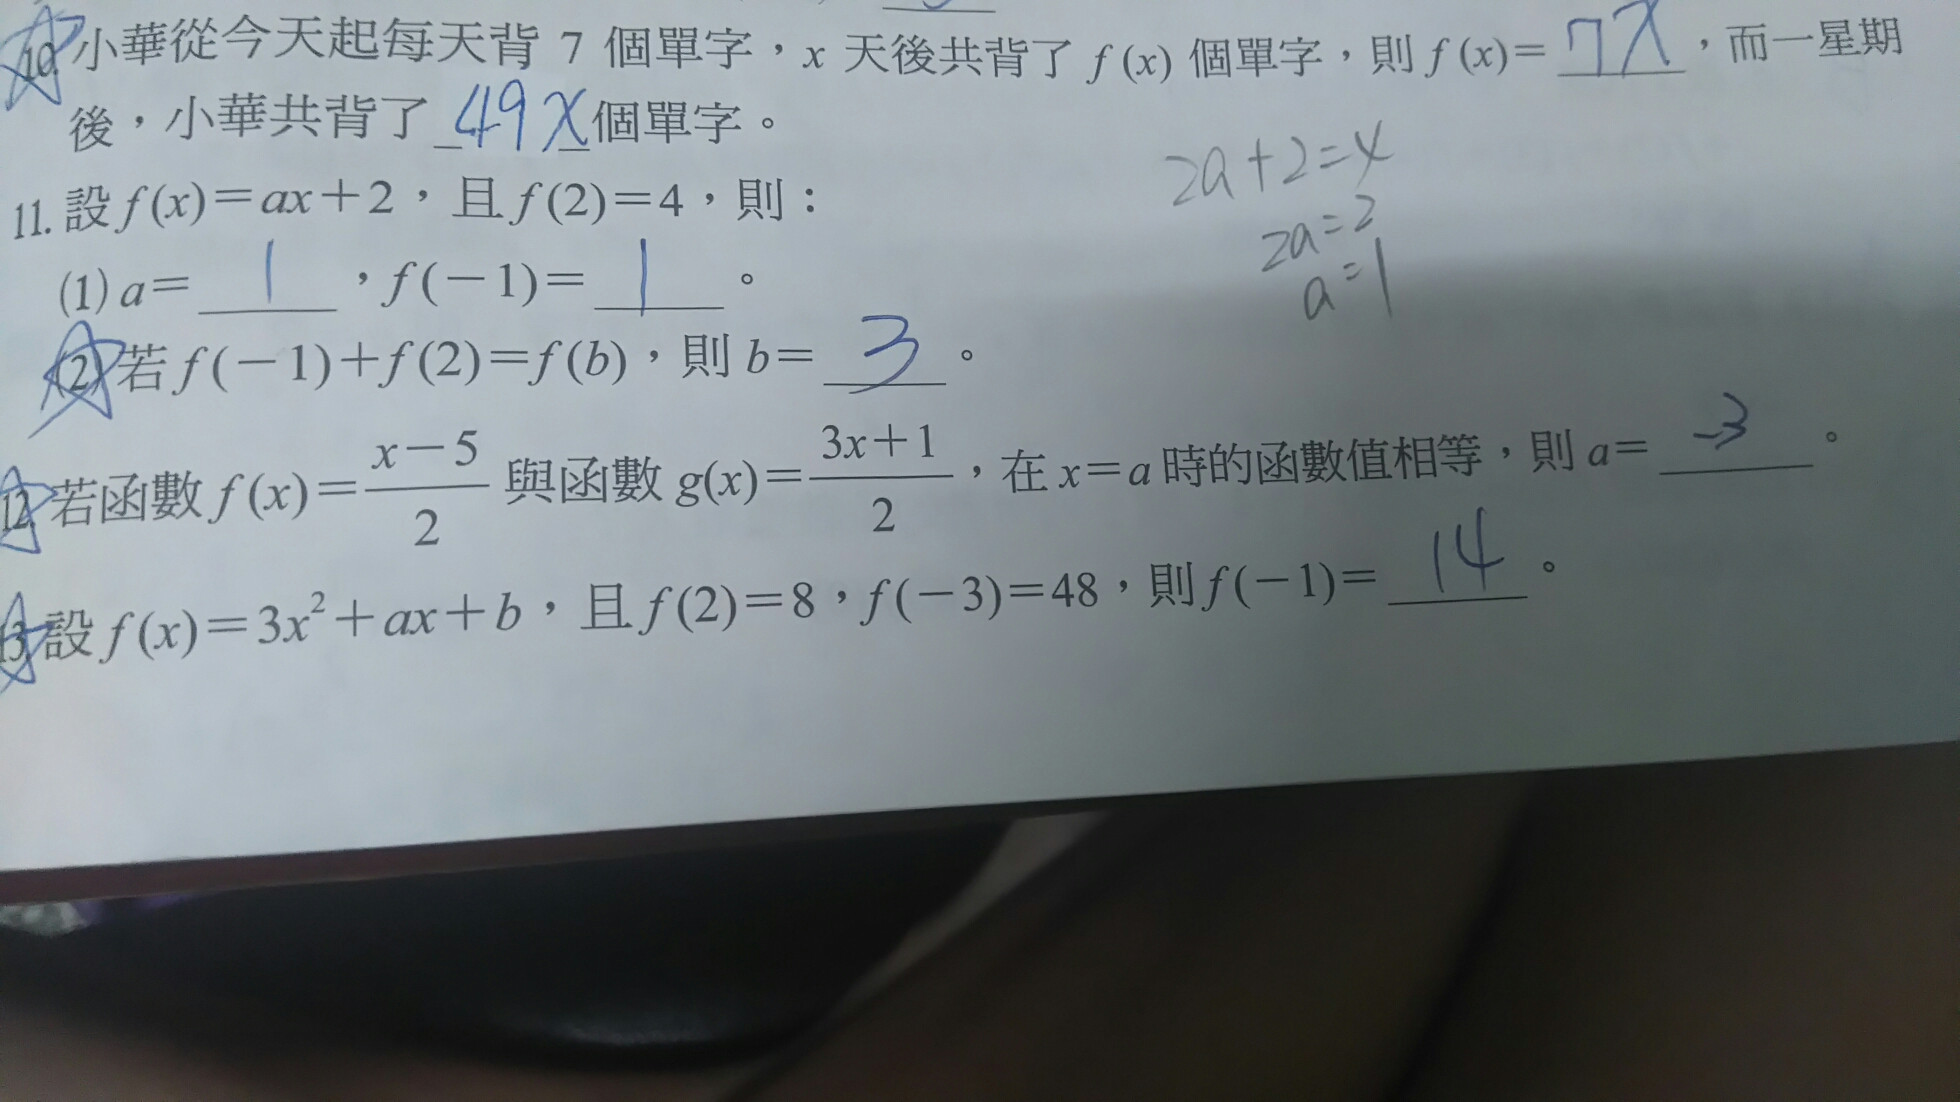 10. 小華從今天起每天背 7 個單字，x 天後共背了 f(x) 個單字，則 f(x)= 7x ，而一星期
後，小華共背了 49x 個單字。
2a+2=4
11. 設 f(x)=ax+2，且 f(2)=4，則：
2a=2
(1) a= 1 ，f(-1)= 1 。
a=1
(2) 若 f(-1)+f(2)=f(b)，則 b= 3 。
12. 若函數 f(x)=\frac{x-5}{2} 與函數 g(x)=\frac{3x+1}{2}，在 x=a 時的函數值相等，則 a= -3 。
13. 設 f(x)=3x²+ax+b，且 f(2)=8，f(-3)=48，則 f(-1)= 14 。